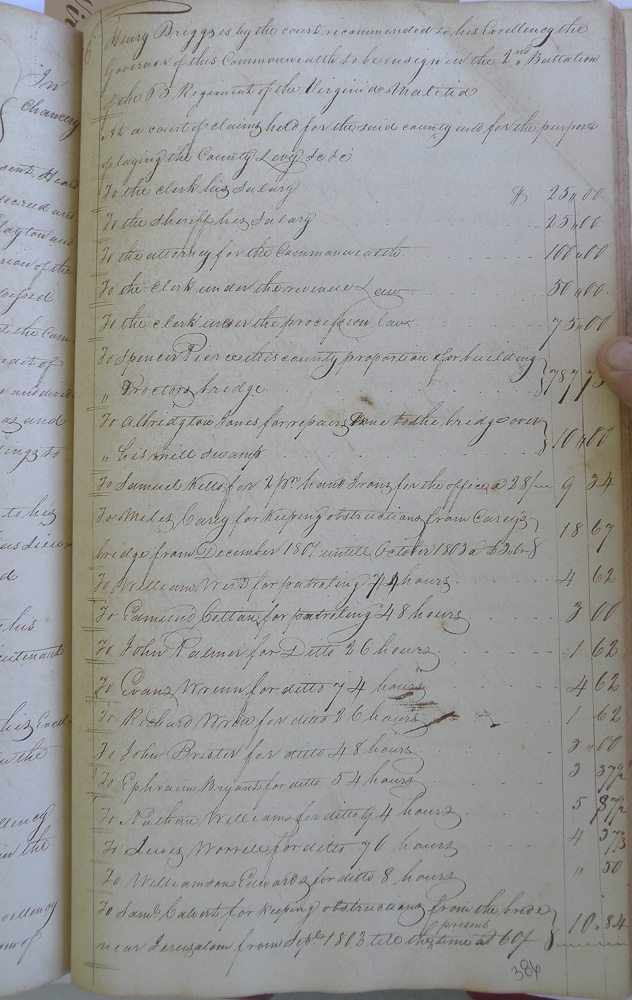 In
Chancery
Henry Briggs is by the court recommended to his Excellency the
Governor of this Commonwealth to be ensign in the 2nd Battalion
of the 65 Regement of the Virginia Malitia
At a court of claims held for the said county and for the purpose
of laying the County Levy &c &c
To the clerk his Salary $ 25,,00
To the sheriff his salary 25,,00
To the attorney for the Commonwealth 100,,00
To the Clerk under the revenue Law 50,,00
To the clerk under the procession law 75,,00
To Spencer Pierce this county proportion for building
,, Proctors bridge
To Albridgton Jones for repairs Due to the bridge over
,, his mill swamp 10,,00
To Samuel Kello for 2 pr hand Irons for the office @ 28/ 9 34
To Miles Carey for keeping obstructions from Careys
bridge from December 1801 untill October 1803 18 67
To William West for patroling 74 hours 4 62
To Edmund Cotton for patroling 48 hours 3 00
To John Palmer for Ditto 26 hours 1 62
To Evans Wrenn for ditto 74 hours 4 62
To Richard for ditto 26 hours 1 62
To John Brister for ditto 48 hours 3 ,,00
To Ephraim Bryant for ditto 54 hours 3 37½
To Nathan Williams for ditto 94 hours 5 87½
To Lewis Worrell for ditto 70 hours 4 37½
To Williamson Edwards for ditto 8 hours ,, 50
To Saml Calvert for keeping obstructions from the bridge
near Jerusalem from Sept 1803 till the present time at 60/ 10.84
386